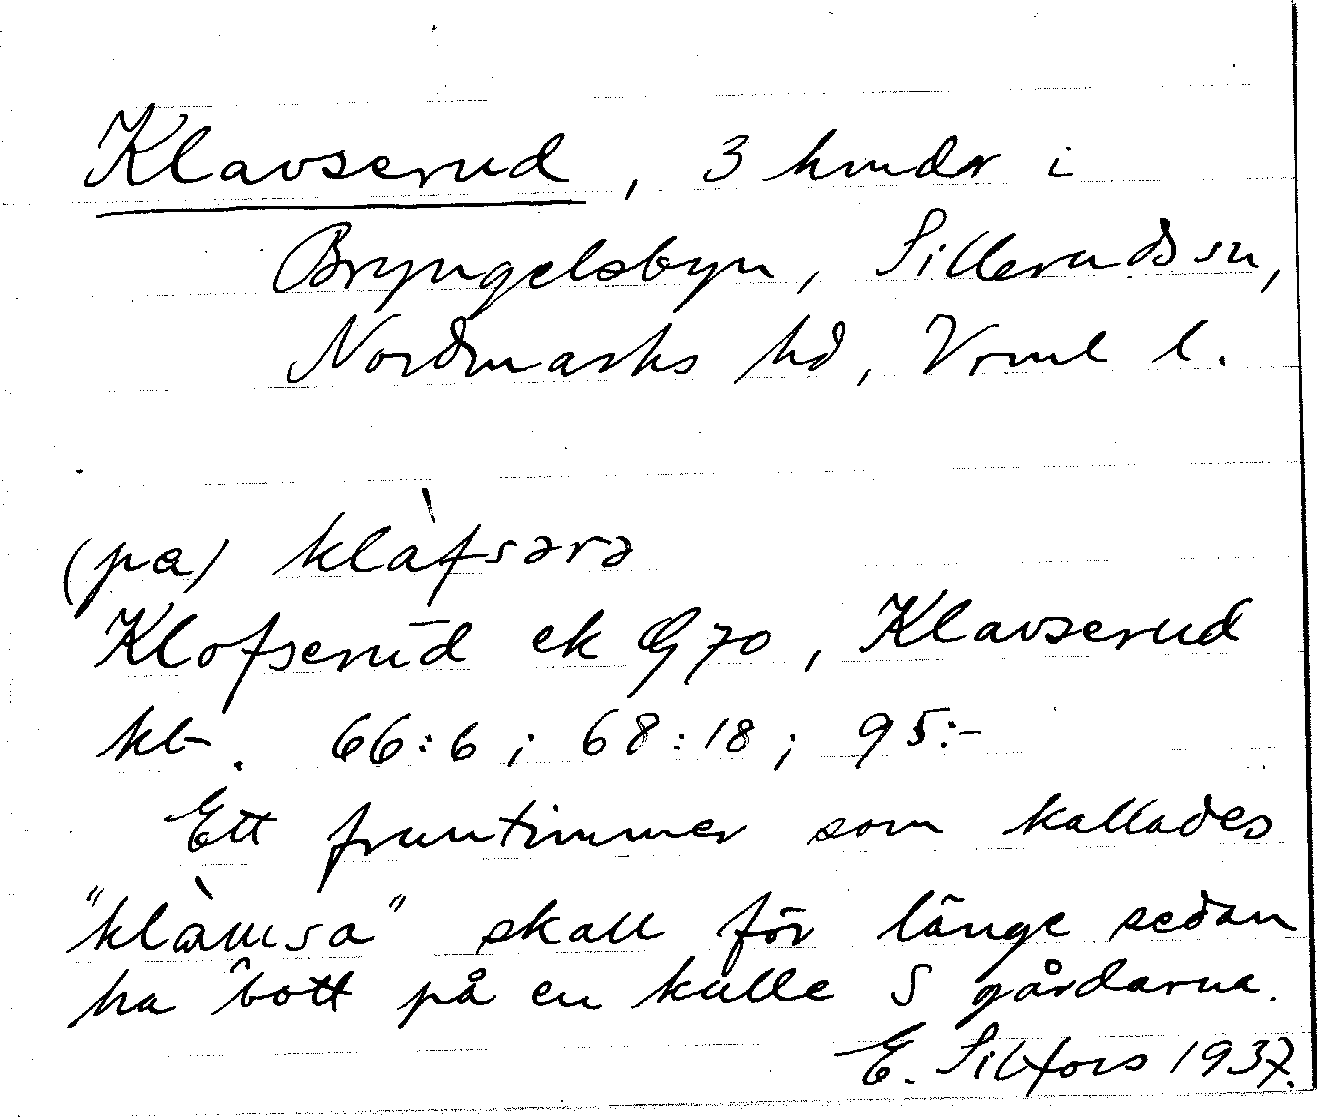 Klavserud, 3 hmdr i
Bryngelsbyn, Silleruds sn,
Nordmarks hd, Vrml l.
(pa) klàfsərə
Klofserud ek G 70, Klavserud
kb. 66:6; 68:18; 95:-
Ett fruntimmer som kallades
"klàmsa" skall för länge sedan
ha bott på en kulle S gårdarna.
E. Silfors 1937.